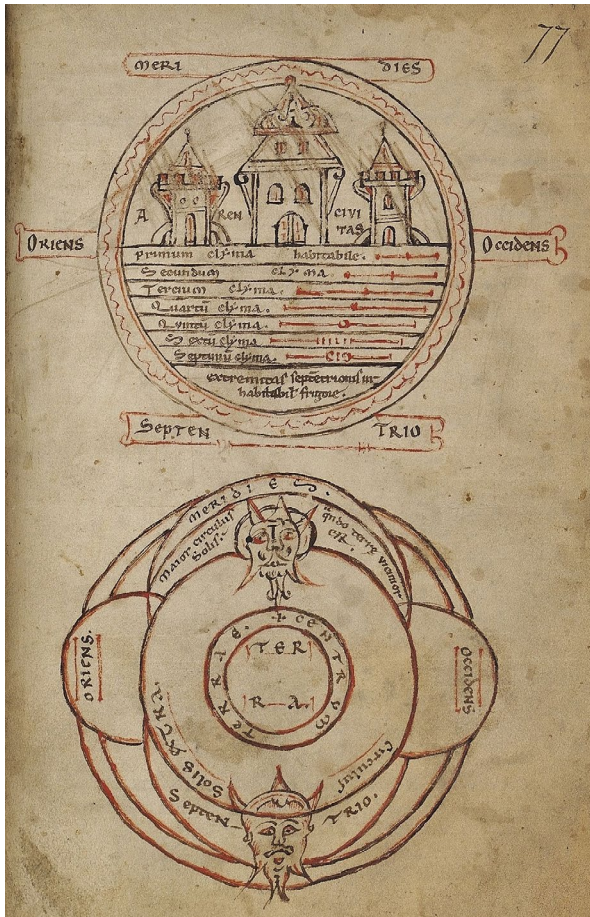 77
MERI DIES
A REN CIVI
TAS
ORIENS
OCCIDENS
primum clyma habitabile.
Secundum clyma
Tercium clyma.
Quartū clyma.
Quintū clyma.
Sextū clyma
Septimū clyma.
extremitas septētrionis in
habitabil frigore.
SEPTEN TRIO
MERIDIES.
Maior circulus
Solis.
qn̄do terre vicinior
est.
ORIENS.
OCCIDENS
TERRAE. CENTRUM
TER
RA.
Solis
Circulus
SEPTEN TRIO.